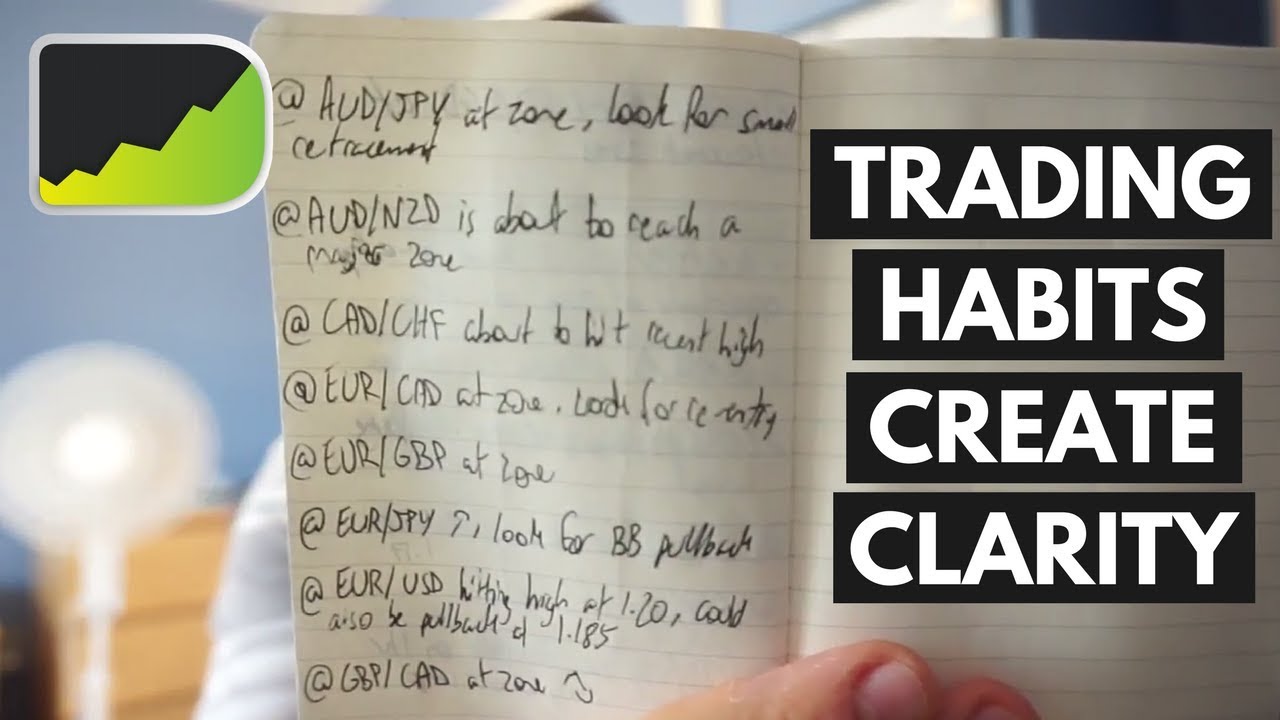 @ AUD/JPY at zone, look for small
retracement
@ AUD/NZD is about to reach a
major zone
@ CAD/CHF about to hit recent high
@ EUR/CAD at zone. Look for re-entry
@ EUR/GBP at zone
@ EUR/JPY ↑, look for BB pullback
@ EUR/USD hitting high at 1.20, could
also be pullback at 1.185
@ GBP/CAD at zone
TRADING
HABITS
CREATE
CLARITY